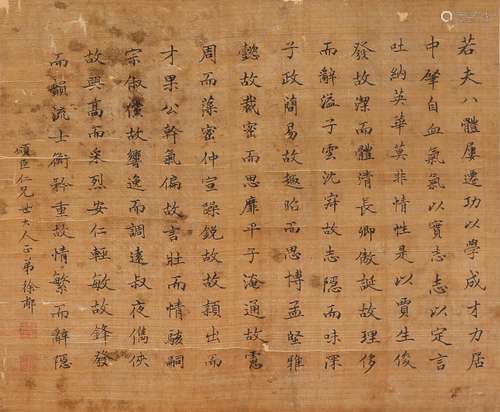 若夫八體屢遷功以學成才力居
中肇自血氣氣以實志志以定言
吐納英華莫非情性是以賈生俊
發故潔而體清長卿傲誕故理侈
而辭溢子雲沈寂故志隱而味深
子政簡易故趣昭而思博孟堅雅
懿故裁密而思靡平子淹通故慮
周而藻密仲宣躁銳故穎出而
才果公幹氣偏故言壯而情駭嗣
宗俶儻故響逸而調遠叔夜儁俠
故興高而采烈安仁輕敏故鋒發
而韻流士衡矜重故情繁而辭隱
頌臣仁兄世大人正弟徐郙